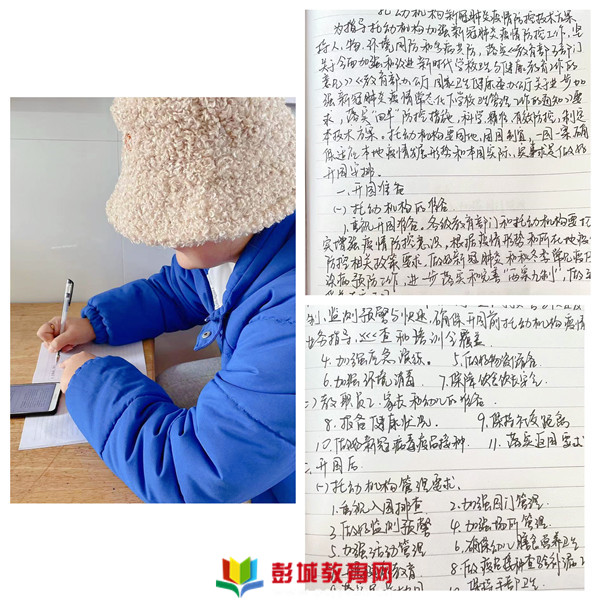 托幼机构新冠肺炎疫情防控技术方案
为指导托幼机构加强新冠肺炎疫情防控工作,坚
持人、物、环境同防和多病共防,落实《教育部等五部门
关于全面加强和改进新时代学校卫生与健康教育工作的
意见》《教育部办公厅 国家卫生健康委办公厅关于进一步加
强新冠肺炎疫情常态化下学校卫生管理工作的通知》要
求,落实“四早”防控措施,科学、精准、有效防控,制定
本技术方案。托幼机构要因地、因园制宜,一园一案,确
保适应本地疫情发展形势和本园实际,实事求是做好
开园安排。
一、开园准备
(一)托幼机构的准备
1.开园准备。各级教育部门和托幼机构要切
实增强疫情防控意识,根据疫情形势和所在地疫
防控相关政策要求,做好新冠肺炎和秋冬季常见传
染病预防工作,进一步落实和完善“两案九制”,做
制,监测预警与快速,确保开园前托幼机构疫情
业务指导、查和培训全覆盖
4.加强应急演练。 5.做好物资储备
6.加强环境消毒 7.保障饮食饮水安全
(二)教职员工、家长和幼儿的准备
8.报告健康状况。 9.保持社交距离
10.做好新冠病毒疫苗接种 11.落实返园要求
二、开园后
(一)托幼机构管理要求
1.入园排查 2.加强园门管理
3.做好监测预警 4.加强场所管理
5.加强活动管理 6.确保幼儿膳食营养卫生
教育 8.做疫苗接种查验补漏工
彭城教育网